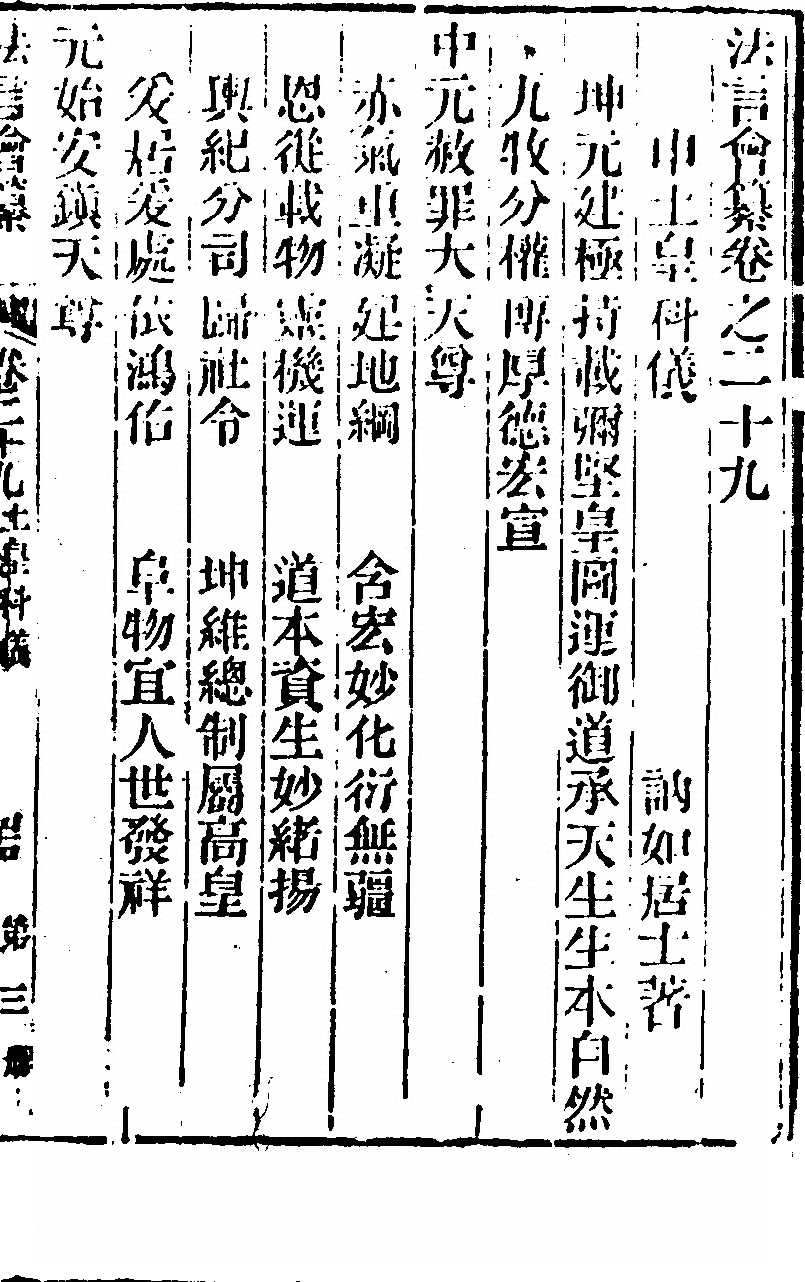 法言會纂卷之二十九
中土皇科儀
訥如居士著
坤元建極持載彌堅皇圖運御道承天生生本自然
九牧分權博厚德宏宣
中元赦罪大天尊
赤氣車凝建地綱 含宏妙化衍無疆
恩從載物靈機運 道本資生妙緒揚
輿紀分司歸社令 坤維總制屬高皇
爰居爰處依鴻佑 阜物宜人世發祥
元始安鎮天尊
法言會纂 卷二十九土皇科儀 第三